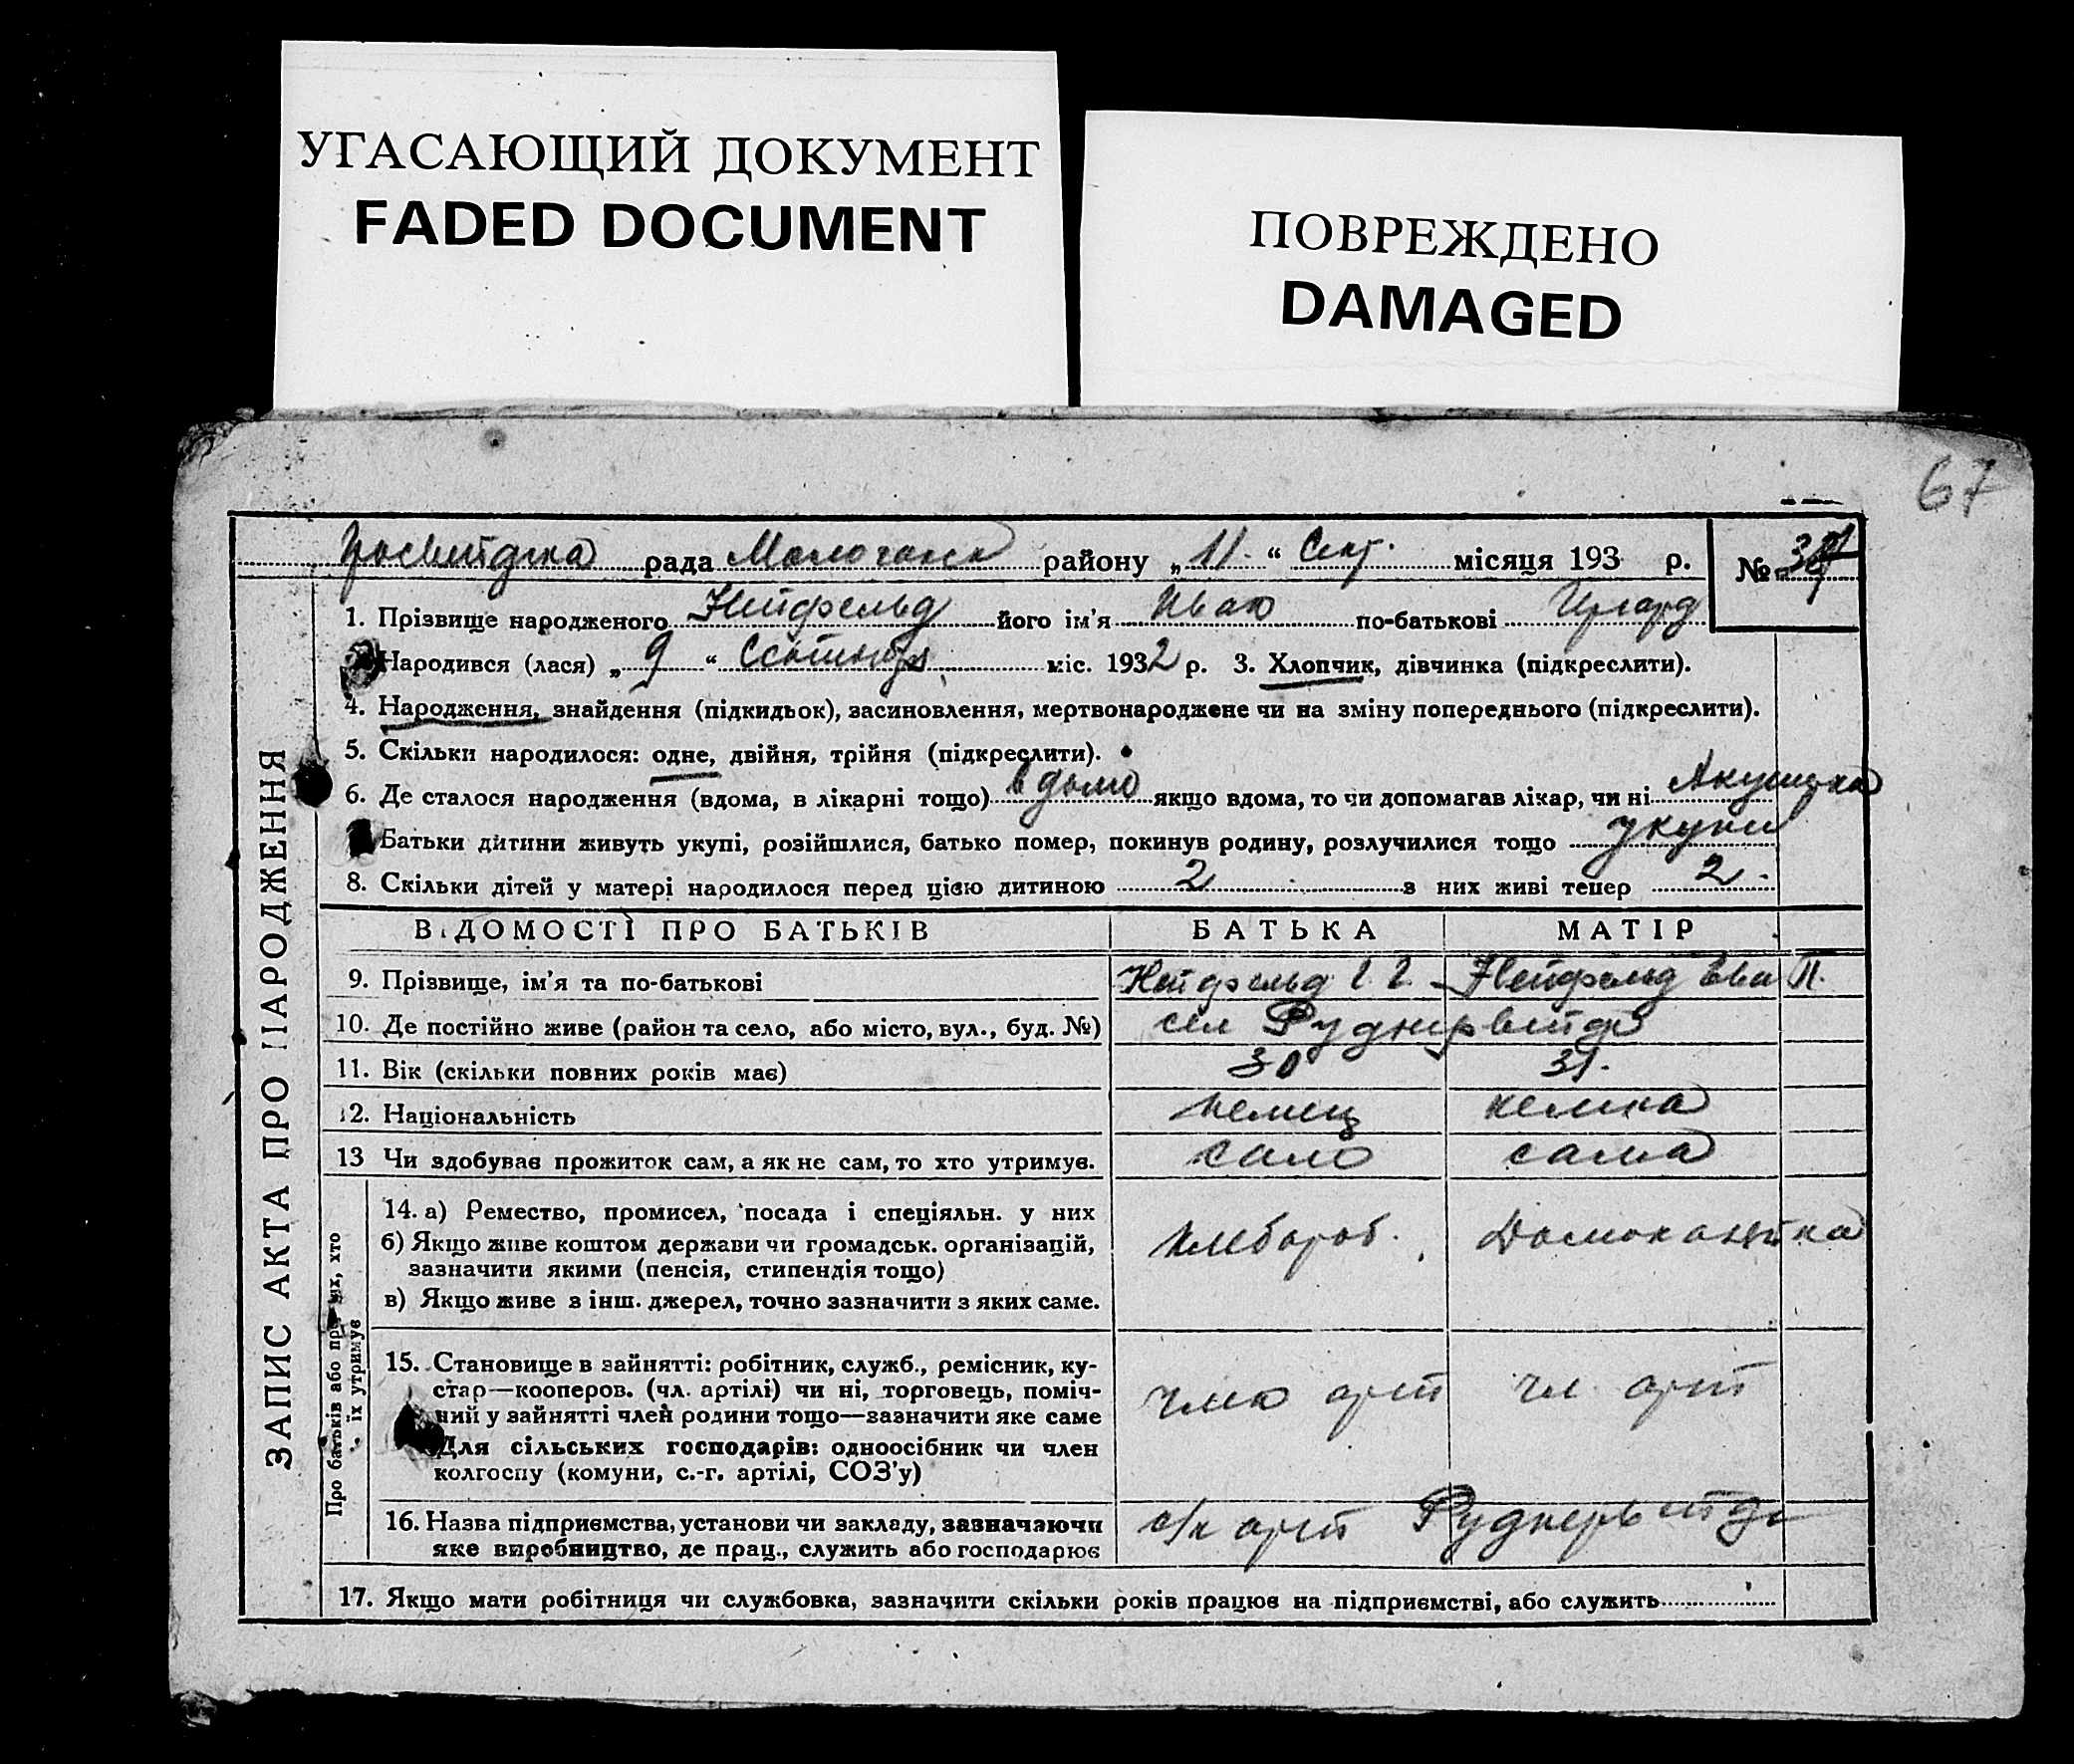 УГАСАЮЩИЙ ДОКУМЕНТ
FADED DOCUMENT
ПОВРЕЖДЕНО
DAMAGED
67
рада Молочанск району „11.“ Сент. місяця 193 р. №
1. Прізвище народженого Нейфельд його ім'я Иван по-батькові
Народився (лася) „9“ Сентября міс. 1932 р. 3. Хлопчик, дівчинка (підкреслити).
4. Народження, знайдення (підкидьок), засиновлення, мертвонароджене чи на зміну попереднього (підкреслити).
5. Скільки народилося: одне, двійня, трійня (підкреслити).
6. Де сталося народження (вдома, в лікарні тощо) в дома якщо вдома, то чи допомагав лікар, чи ні Акушерка
Батьки дитини живуть укупі, розійшлися, батько помер, покинув родину, розлучилися тощо укупи
8. Скільки дітей у матері народилося перед цією дитиною 2 з них живі тепер 2.
ВІДОМОСТІ ПРО БАТЬКІВ БАТЬКА МАТІР
9. Прізвище, ім'я та по-батькові Нейфельд Г. Г. Нейфельд Ева П.
10. Де постійно живе (район та село, або місто, вул., буд. №) сел Руднервейде
11. Вік (скільки повних років має) 30 31.
12. Національність немец немка
13 Чи здобуває прожиток сам, а як не сам, то хто утримує. само сама
14. а) Ремество, промисел, посада і спеціяльн. у них
б) Якщо живе коштом держави чи громадськ. організацій,
зазначити якими (пенсія, стипендія тощо)
в) Якщо живе з інш. джерел, точно зазначити з яких саме.
хлебороб. Домохазяйка
15. Становище в зайнятті: робітник, служб., ремісник, ку-
стар—кооперов. (чл. артілі) чи ні, торговець, поміч-
ний у зайнятті член родини тощо—зазначити яке саме
Для сільських господарів: одноосібник чи член
колгоспу (комуни, с.-г. артілі, СОЗ'у)
член арт чл. арт
16. Назва підприємства, установи чи закладу, зазначаючи
яке виробництво, де прац., служить або господарює
с/х арт Руднервейде
17. Якщо мати робітниця чи службовка, зазначити скільки років працює на підприємстві, або служить
ЗАПИС АКТА ПРО НАРОДЖЕННЯ
Про батьків або про тих, хто
їх утримує